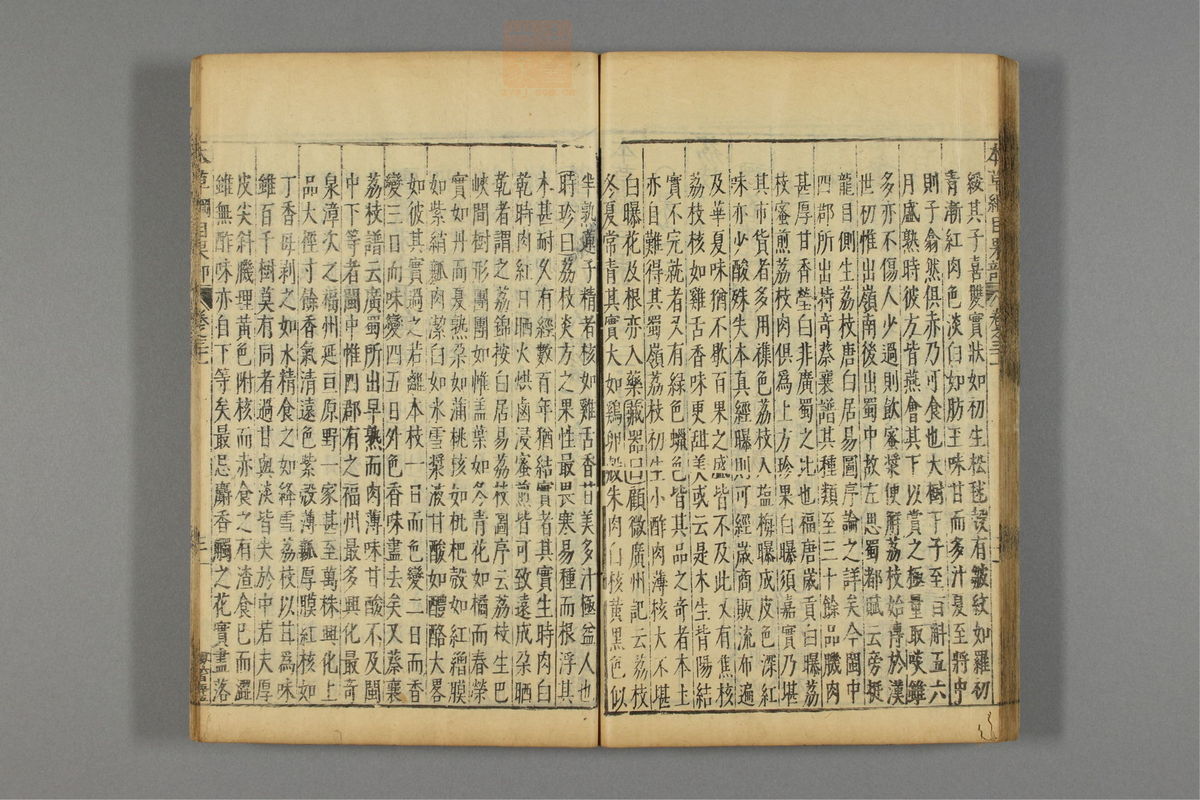 綬其子喜雙實狀如初生松毬殼有皺紋如羅初
青漸紅肉色淡白如肪玉味甘而多汁夏至將中
則子翕然俱赤乃可食也大樹下子至百斛五六
月盛熟時彼方皆燕會其下以賞之極量取啖雖
多亦不傷人少過則飲蜜漿便解荔枝始傳於漢
世初惟出嶺南後出蜀中故左思蜀都賦云旁挺
龍目側生荔枝唐白居易圖序論之詳矣今閩中
四郡所出特奇蔡襄譜其種類至三十餘品肌肉
甚厚甘香瑩白非廣蜀之比也福唐歲貢白曝荔
枝蜜煎荔枝肉俱爲上方珍果白曝須嘉實乃堪
其市貨者多用雜色荔枝入鹽梅曝成皮色深紅
味亦少酸殊失本真經曝則可經歲商販流布遍
及華夏味猶不歇百果之盛皆不及此又有焦核
荔枝核如雞舌香味更甜美或云是木生背陽結
實不完就者又有綠色蠟色皆其品之奇者本土
亦自難得其蜀嶺荔枝初生小酢肉薄核大不堪
白曝花及根亦入藥藏器曰顧微廣州記云荔枝
冬夏常青其實大如鷄卵殼朱肉白核黃黑色似
半熟蓮子精者核如雞舌香甘美多汁極益人也
時珍曰荔枝炎方之果性最畏寒易種而根浮其
木甚耐久有經數百年猶結實者其實生時肉白
乾時肉紅日晒火烘鹵浸蜜煎皆可致遠成朶晒
乾者謂之荔錦按白居易荔枝圖序云荔枝生巴
峽間樹形團團如帷蓋葉如冬青花如橘而春榮
實如丹而夏熟朶如蒲桃核如枇杷殼如紅繒膜
如紫綃瓤肉潔白如氷雪漿液甘酸如醴酪大畧
如彼其實過之若離本枝一日而色變二日而香
變三日而味變四五日外色香味盡去矣又蔡襄
荔枝譜云廣蜀所出早熟而肉薄味甘酸不及閩
中下等者閩中惟四郡有之福州最多興化最奇
泉漳次之福州延亘原野一家甚至萬株興化上
品大徑寸餘香氣清遠色紫殼薄瓤厚膜紅核如
丁香母剥之如水精食之如絳雪荔枝以甘爲味
雖百千樹莫有同者過甘與淡皆失於中若夫厚
皮尖刺肌理黃色附核而赤食之有渣食已而澀
雖無酢味亦自下等矣最忌麝香觸之花實盡落